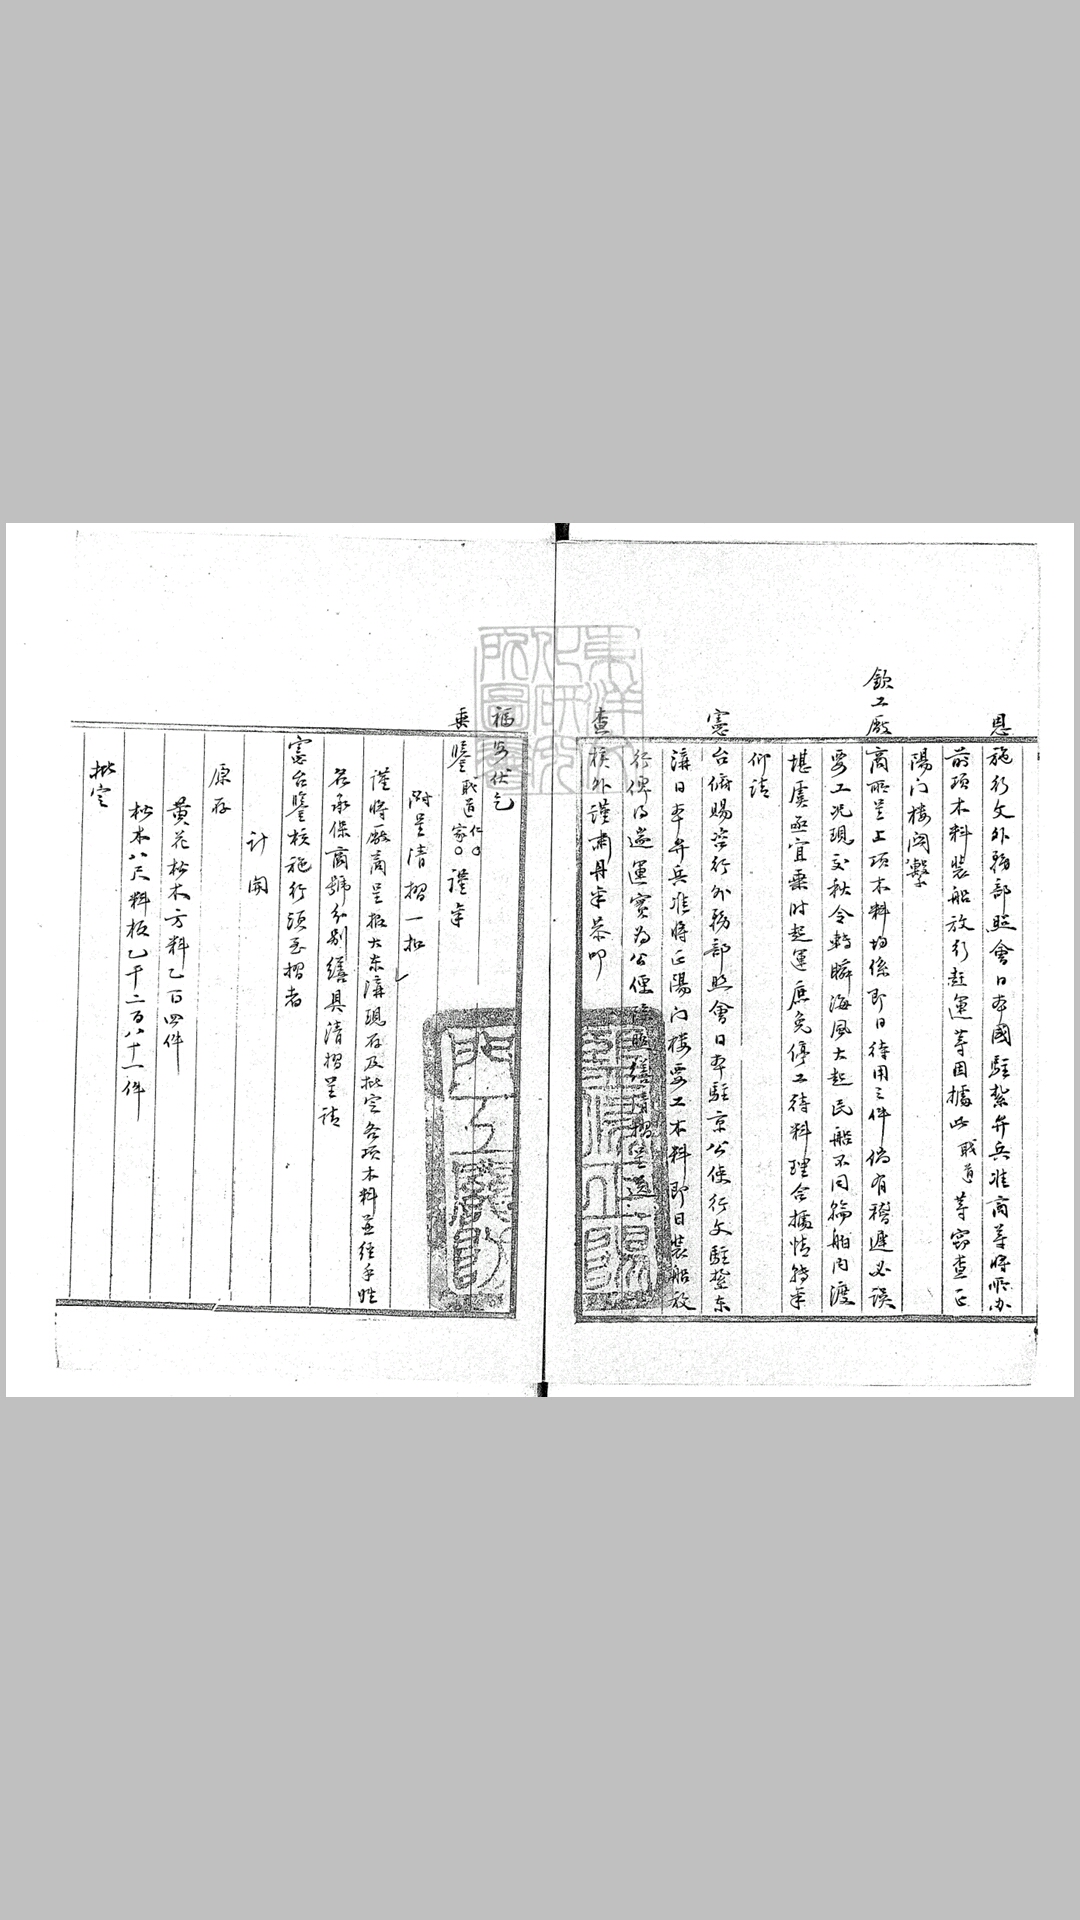 恩施行文外務部照會日本國駐紮弁兵准商等將所办
前項木料裝船放行赶運等因據此職道等窃查正
陽门楼関繫
欽工廠商所呈上項木料均係即日待用之件倘有稽遲必误
要工况現交秋令轉瞬海風大起民船不同輪舶内渡
堪虞亟宜乘时起運庶免停工待料理合據情特牢
仰请
憲台俯賜咨行外務部照會日本駐京公使行文駐大东
溝日本弁兵准將正陽门楼要工木料即日裝船放
行俾得遄運實为公便除照繕清摺呈送
查核外谨肅丹牢恭叩
福安伏乞
垂鑒職道仁〇家〇谨牢
附呈清摺一扣
谨将廠商呈报大东溝現存及批定各項木料並经手姓
名承保商號分别繕具清摺呈请
憲台鑒核施行須至摺者
计開
原存
黄花松木方料乙百四件
松木八尺料板乙千二百八十一件
批定
東洋文化研究所圖書